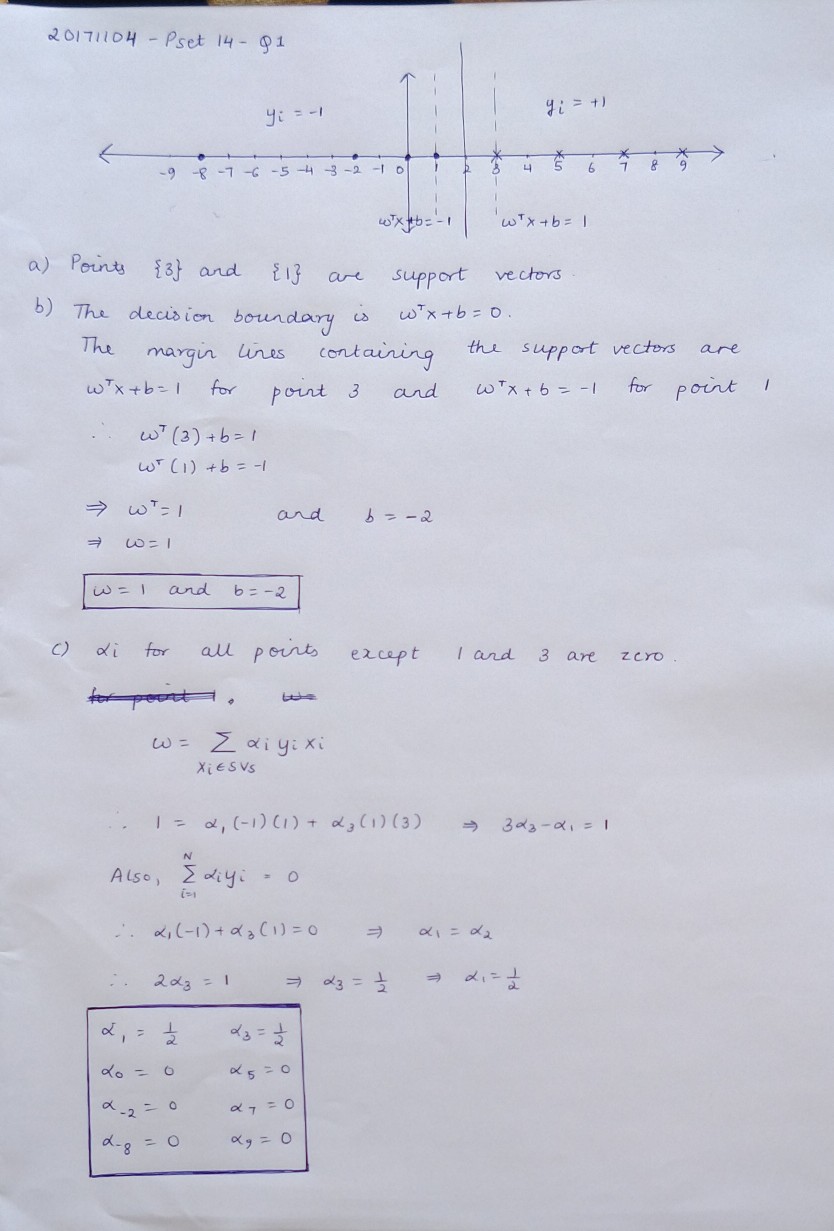 20171104 - Pset 14 - Q1
yi = -1
yi = +1
-9 -8 -7 -6 -5 -4 -3 -2 -1 0 1 2 3 4 5 6 7 8 9
wᵀx+b = -1 wᵀx+b = 1
a) Points {3} and {1} are support vectors.
b) The decision boundary is wᵀx+b=0.
The margin lines containing the support vectors are
wᵀx+b=1 for point 3 and wᵀx+b = -1 for point 1
∴ wᵀ(3)+b=1
wᵀ(1)+b=-1
⇒ wᵀ=1 and b = -2
⇒ w=1
w=1 and b=-2
c) αi for all points except 1 and 3 are zero.
for point 1. w=
w = Σ αi yi xi
xi∈SVs
∴ 1 = α₁(-1)(1) + α₃(1)(3) ⇒ 3α₃-α₁ = 1
Also, Σ αiyi = 0
N
i=1
∴ α₁(-1)+α₃(1)=0 ⇒ α₁ = α₂
∴ 2α₃ = 1 ⇒ α₃ = 1/2 ⇒ α₁ = 1/2
α₁ = 1/2 α₃ = 1/2
α₀ = 0 α₅ = 0
α₋₂ = 0 α₇ = 0
α₋₈ = 0 α₉ = 0